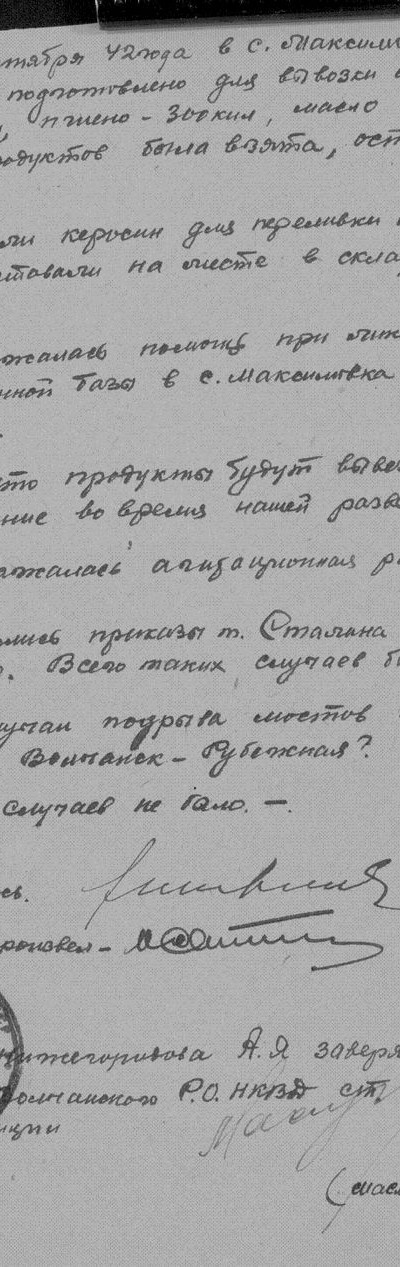 тября 42 года в с. Максим
подготовлено для вывозки
, пшено - 300кил, масло
одуктов была взята, ост
ли керосин для переливки
товали на месте в скла
жалась помощь при лик
нной базы в с. Максимовка
то продукты будут выве
ние во время нашей разве
жалась агитационная р
лись приказы т. Сталина
. Всего таких случаев б
учаи подрыва мостов
Волчанск - Рубежная?
случаев не было. -.
сь.
роизвел -
Нижегородова А.Я завер
Волчанского Р.О. НКВД ст.
ции
(Масл